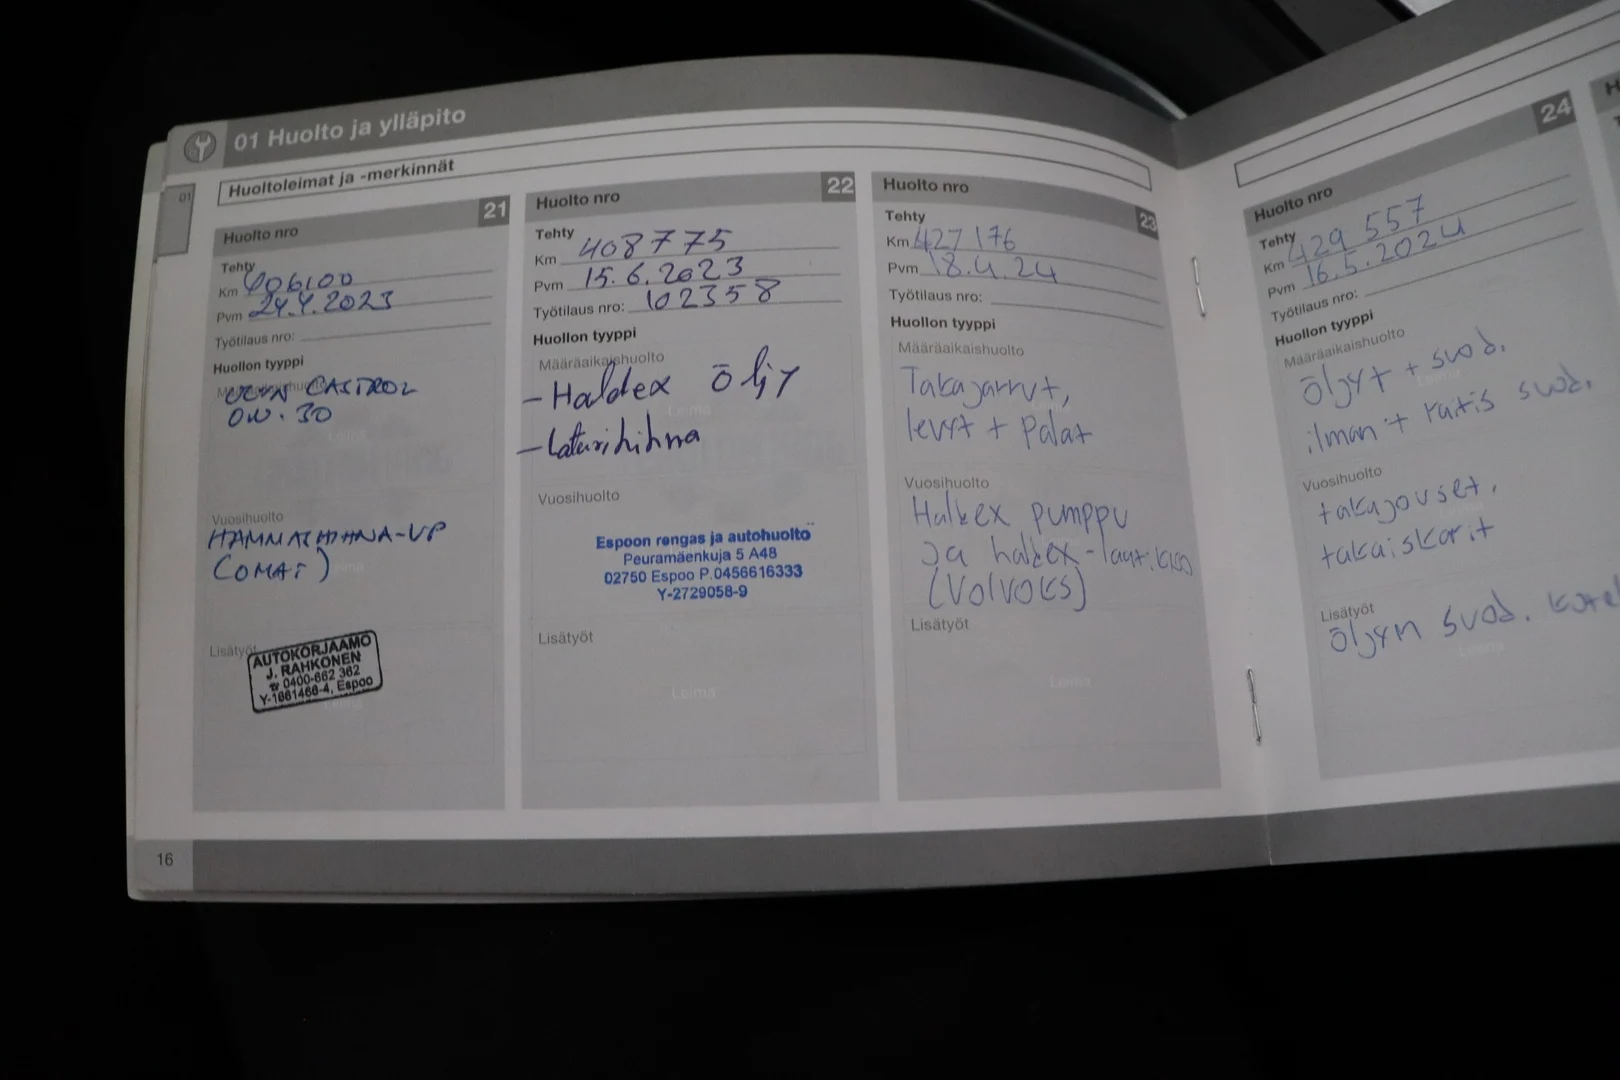 01 Huolto ja ylläpito
01
Huoltoleimat ja -merkinnät
Huolto nro 21
Tehty
Km 406100
Pvm 24.4.2023
Työtilaus nro:
Huollon tyyppi
CASTROL
0W-30
Leima
Vuosihuolto
HAMMASHIHNA-VP
(OMAT)
Leima
Lisätyöt
AUTOKORJAAMO
J. RAHKONEN
☎ 0400-662 362
Y-1661466-4, Espoo
Leima
16
Huolto nro 22
Tehty
Km 408775
Pvm 15.6.2023
Työtilaus nro: 102358
Huollon tyyppi
Määräaikaishuolto
- Haldex öljy
Leima
- Laturihihna
Vuosihuolto
Espoon rengas ja autohuolto
Peuramäenkuja 5 A48
02750 Espoo P.0456616333
Y-2729058-9
Lisätyöt
Leima
Huolto nro 23
Tehty
Km 427176
Pvm 18.4.24
Työtilaus nro:
Huollon tyyppi
Määräaikaishuolto
Takajarrut,
levyt + Palat
Vuosihuolto
Haldex pumppu
ja haldex-laatikko
(VOLVOKS)
Lisätyöt
Leima
24
Huolto nro
Tehty
Km 429 557
Pvm 16.5.2024
Työtilaus nro:
Huollon tyyppi
Määräaikaishuolto
öljyt + suod.
Leima
ilman + raitis suod.
Vuosihuolto
takajouset,
takaiskarit
Lisätyöt
öljyn suod.
Leima